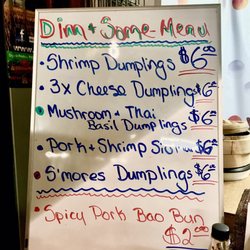 Dim & Some - Menu
• Shrimp Dumplings $6.00
• 3x Cheese Dumplings $6
• Mushroom & Thai
Basil Dumplings $6
• Pork & Shrimp $6
• S'mores Dumplings $6
• Spicy Pork Bao Bun
$2.00